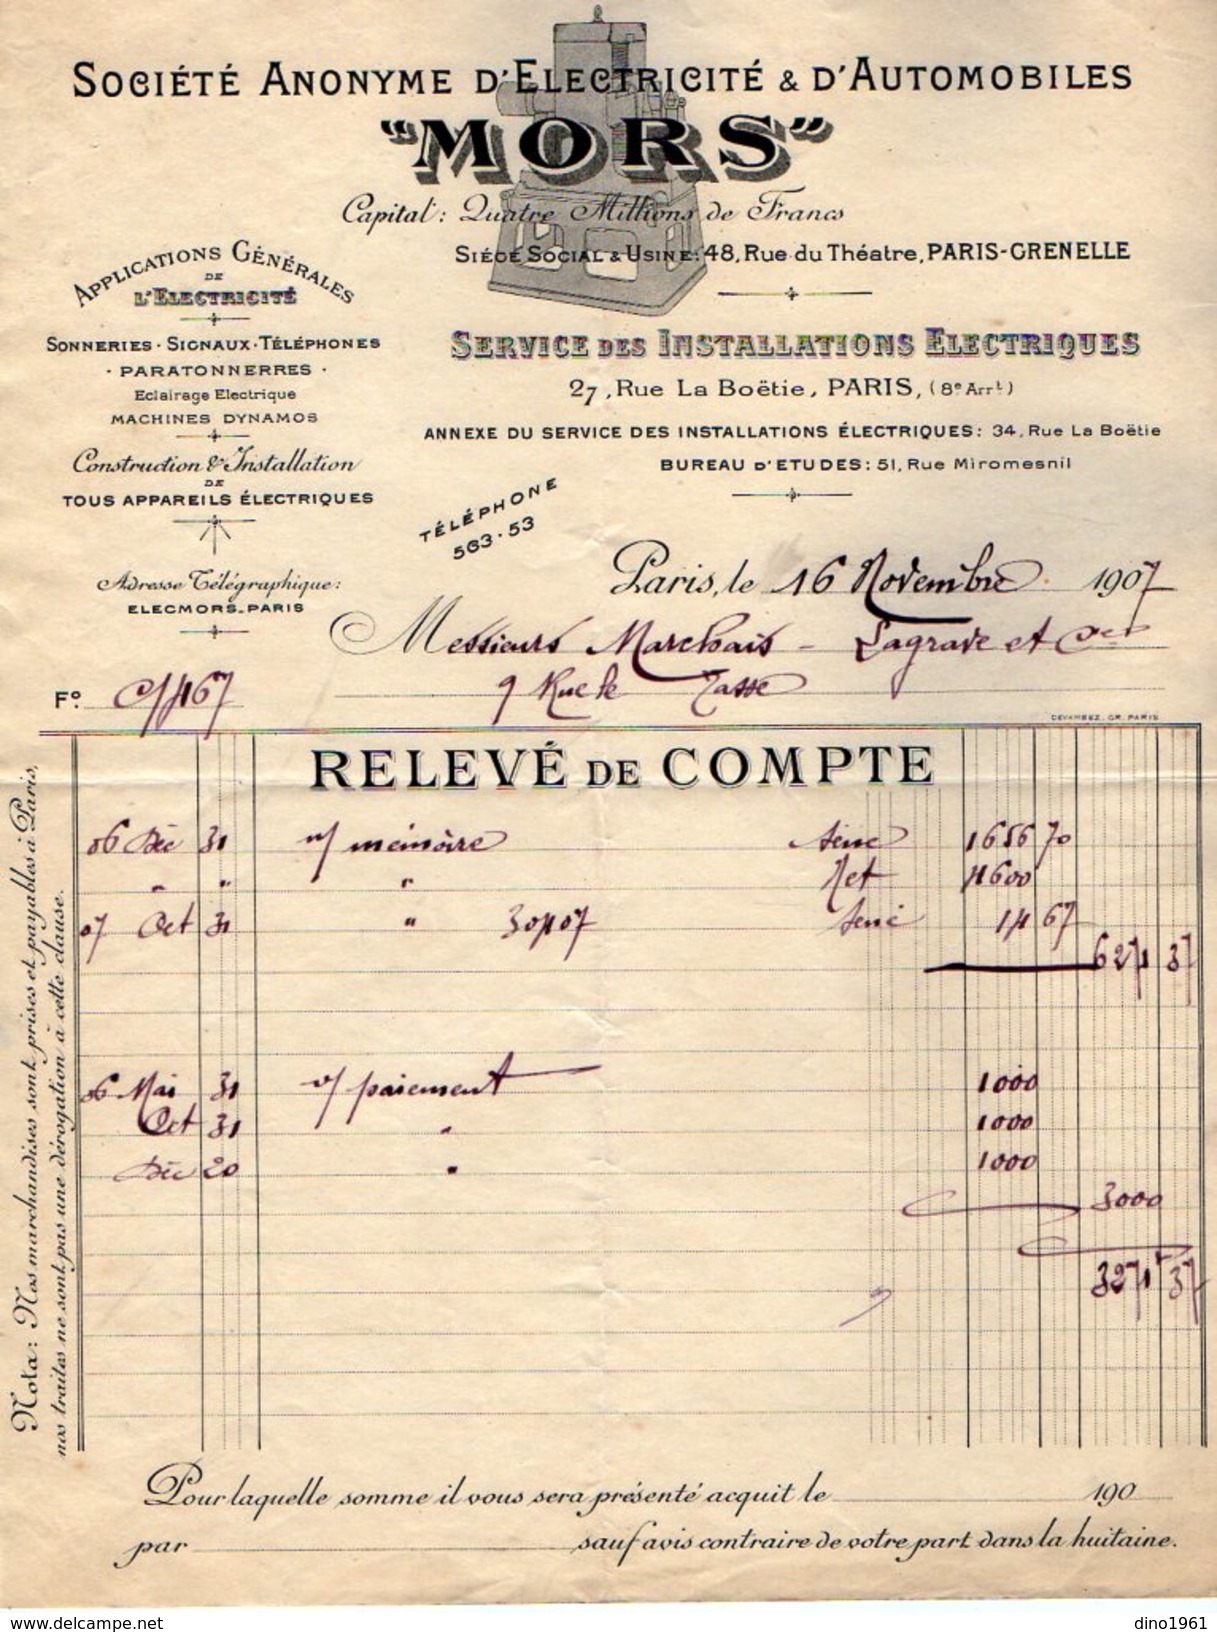 SOCIÉTÉ ANONYME D'ELECTRICITÉ & D'AUTOMOBILES
"MORS"
Capital: Quatre Millions de Francs
SIÈGE SOCIAL & USINE: 48, Rue du Théatre, PARIS-GRENELLE
APPLICATIONS GÉNÉRALES
DE
L'ELECTRICITÉ
SONNERIES · SIGNAUX · TÉLÉPHONES
· PARATONNERRES ·
Eclairage Electrique
MACHINES DYNAMOS
Construction & Installation
DE
TOUS APPAREILS ÉLECTRIQUES
Adresse Télégraphique:
ELECMORS-PARIS
SERVICE DES INSTALLATIONS ELECTRIQUES
27, Rue La Boëtie, PARIS, (8e Arrt)
ANNEXE DU SERVICE DES INSTALLATIONS ÉLECTRIQUES: 34, Rue La Boëtie
BUREAU D'ETUDES: 51, Rue Miromesnil
TÉLÉPHONE
563·53
Paris, le 16 Novembre 1907
Messieurs Marchais - Lagrave et Cie
9 Rue le Tasse
Fo. 467
DEVAMBEZ, GR. PARIS
RELEVÉ DE COMPTE
06 Déc 31 n/ mémoire 1656 70
" " " Net 4600
07 Oct 31 " 30407 14 67
6271 37
06 Mai 31 v/ paiement 1000
Oct 31 " 1000
Déc 20 " 1000
3000
3271 37
Nota: Nos marchandises sont prises et payables à Paris,
nos traites ne sont pas une dérogation à cette clause.
Pour laquelle somme il vous sera présenté acquit le 190
par sauf avis contraire de votre part dans la huitaine.
dino1961